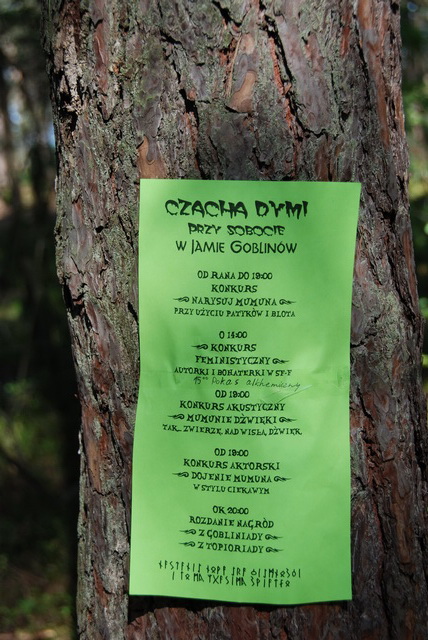 CZACHA DYMI
PRZY SOBOCIE
W JAMIE GOBLINÓW
OD RANA DO 19:00
KONKURS
NARYSUJ MUMUNA
PRZY UŻYCIU PATYKÓW I BŁOTA
O 14:00
KONKURS
FEMINISTYCZNY
AUTORKI I BOHATERKI W SF-F
15⁰⁰ Pokaz alchemiczny
OD 18:00
KONKURS AKUSTYCZNY
MUMUNIE DŹWIĘKI
TAK, ZWIERZĘ, NAD WISŁĄ, DŹWIĘK
OD 19:00
KONKURS AKTORSKI
DOJENIE MUMUNA
W STYLU CIEKAWYM
OK 20:00
ROZDANIE NAGRÓD
Z GOBLINIADY
Z TOPIORIADY